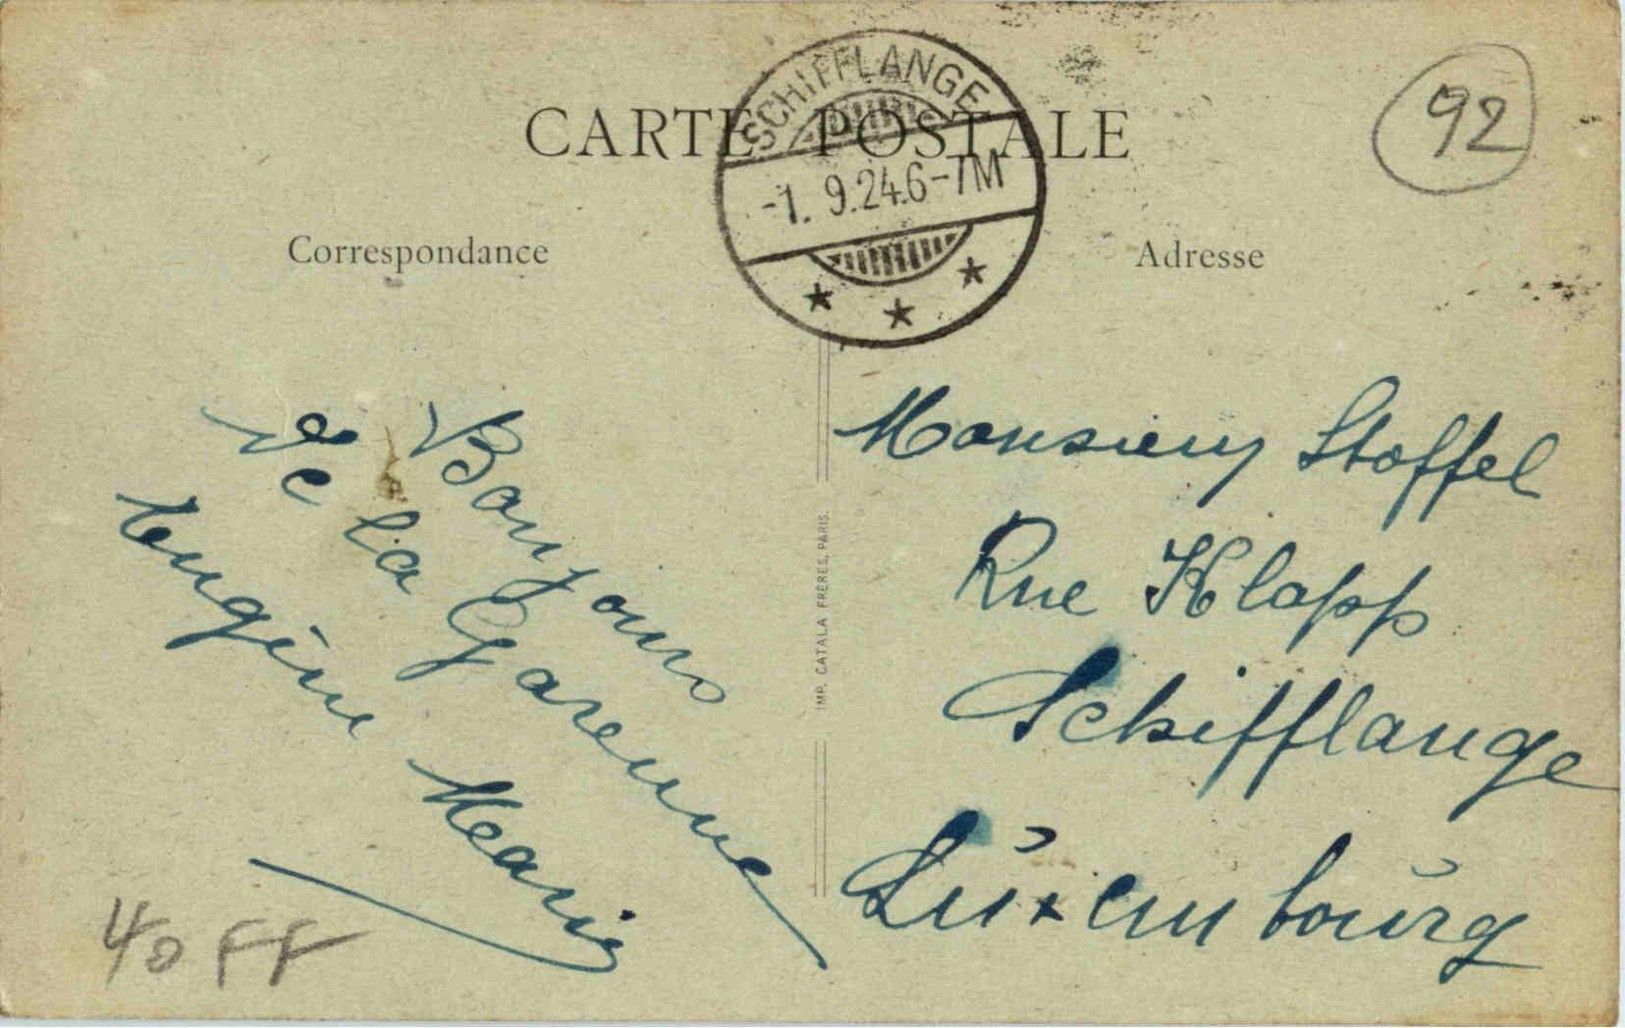 CARTE POSTALE
SCHIFFLANGE
-1. 9.24.6-7M
92
Correspondance
Adresse
Bonjour
de la Garenne
Eugène
IMP. CATALA FRÈRES, PARIS.
Monsieur Stoffel
Rue Klapp
Schifflange
Luxembourg
40 FF